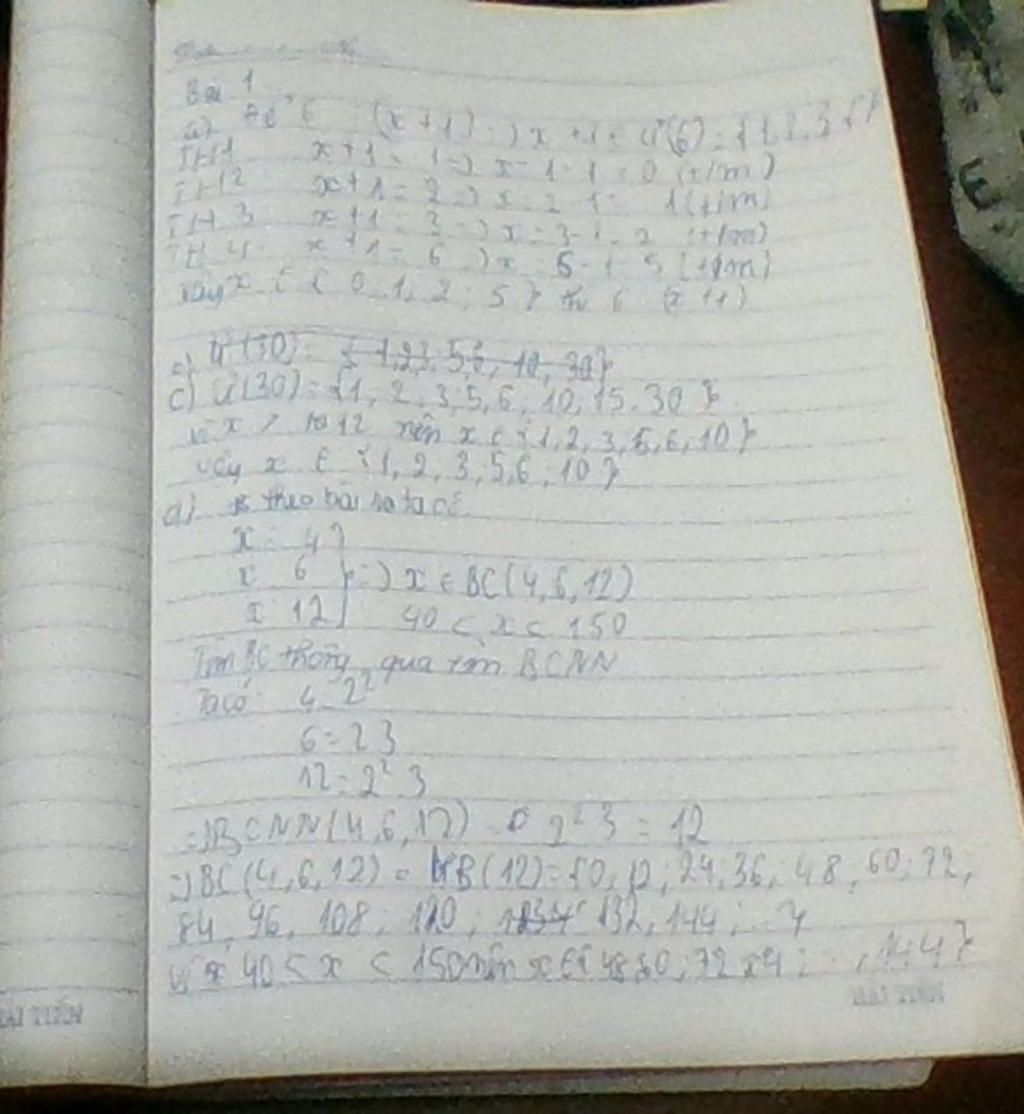 Bài 1
a) Để 6 (x+1) => x+1 = Ư(6) = {1,2,3,6}
TH1 x+1 = 1 => x = 1-1 = 0 (t/m)
TH2 x+1 = 2 => x = 2-1 = 1 (t/m)
TH3 x+1 = 3 => x = 3-1 = 2 (t/m)
TH4 x+1 = 6 => x = 6-1 = 5 (t/m)
vậy x ∈ { 0, 1, 2; 5 } th 6 (x+1)
c) Ư(30) = {1,2,3,5,6, 10, 30}
c) Ư(30) = {1, 2, 3;5,6; 10,15.30}
vì x > 12 nên x ∈ {1,2,3,5,6,10}
vậy x ∈ {1,2,3,5,6,10}
d) theo bài ra ta có
x : 4
x 6 } => x ∈ BC(4,6,12)
x : 12 40 < x < 150
Tìm BC thông qua tìm BCNN
Ta có 4 = 2²
6 = 2 3
12 = 2² 3
=> BCNN(4,6,12) = 2² 3 = 12
=> BC(4,6,12) = B(12) = {0; 12; 24; 36; 48; 60; 72;
84, 96, 108; 120; 132, 144; ...}
vì 40 < x < 150 nên x ∈ {48;60;72;84; ...,144}
HẢI TIẾN
HẢI TIẾN